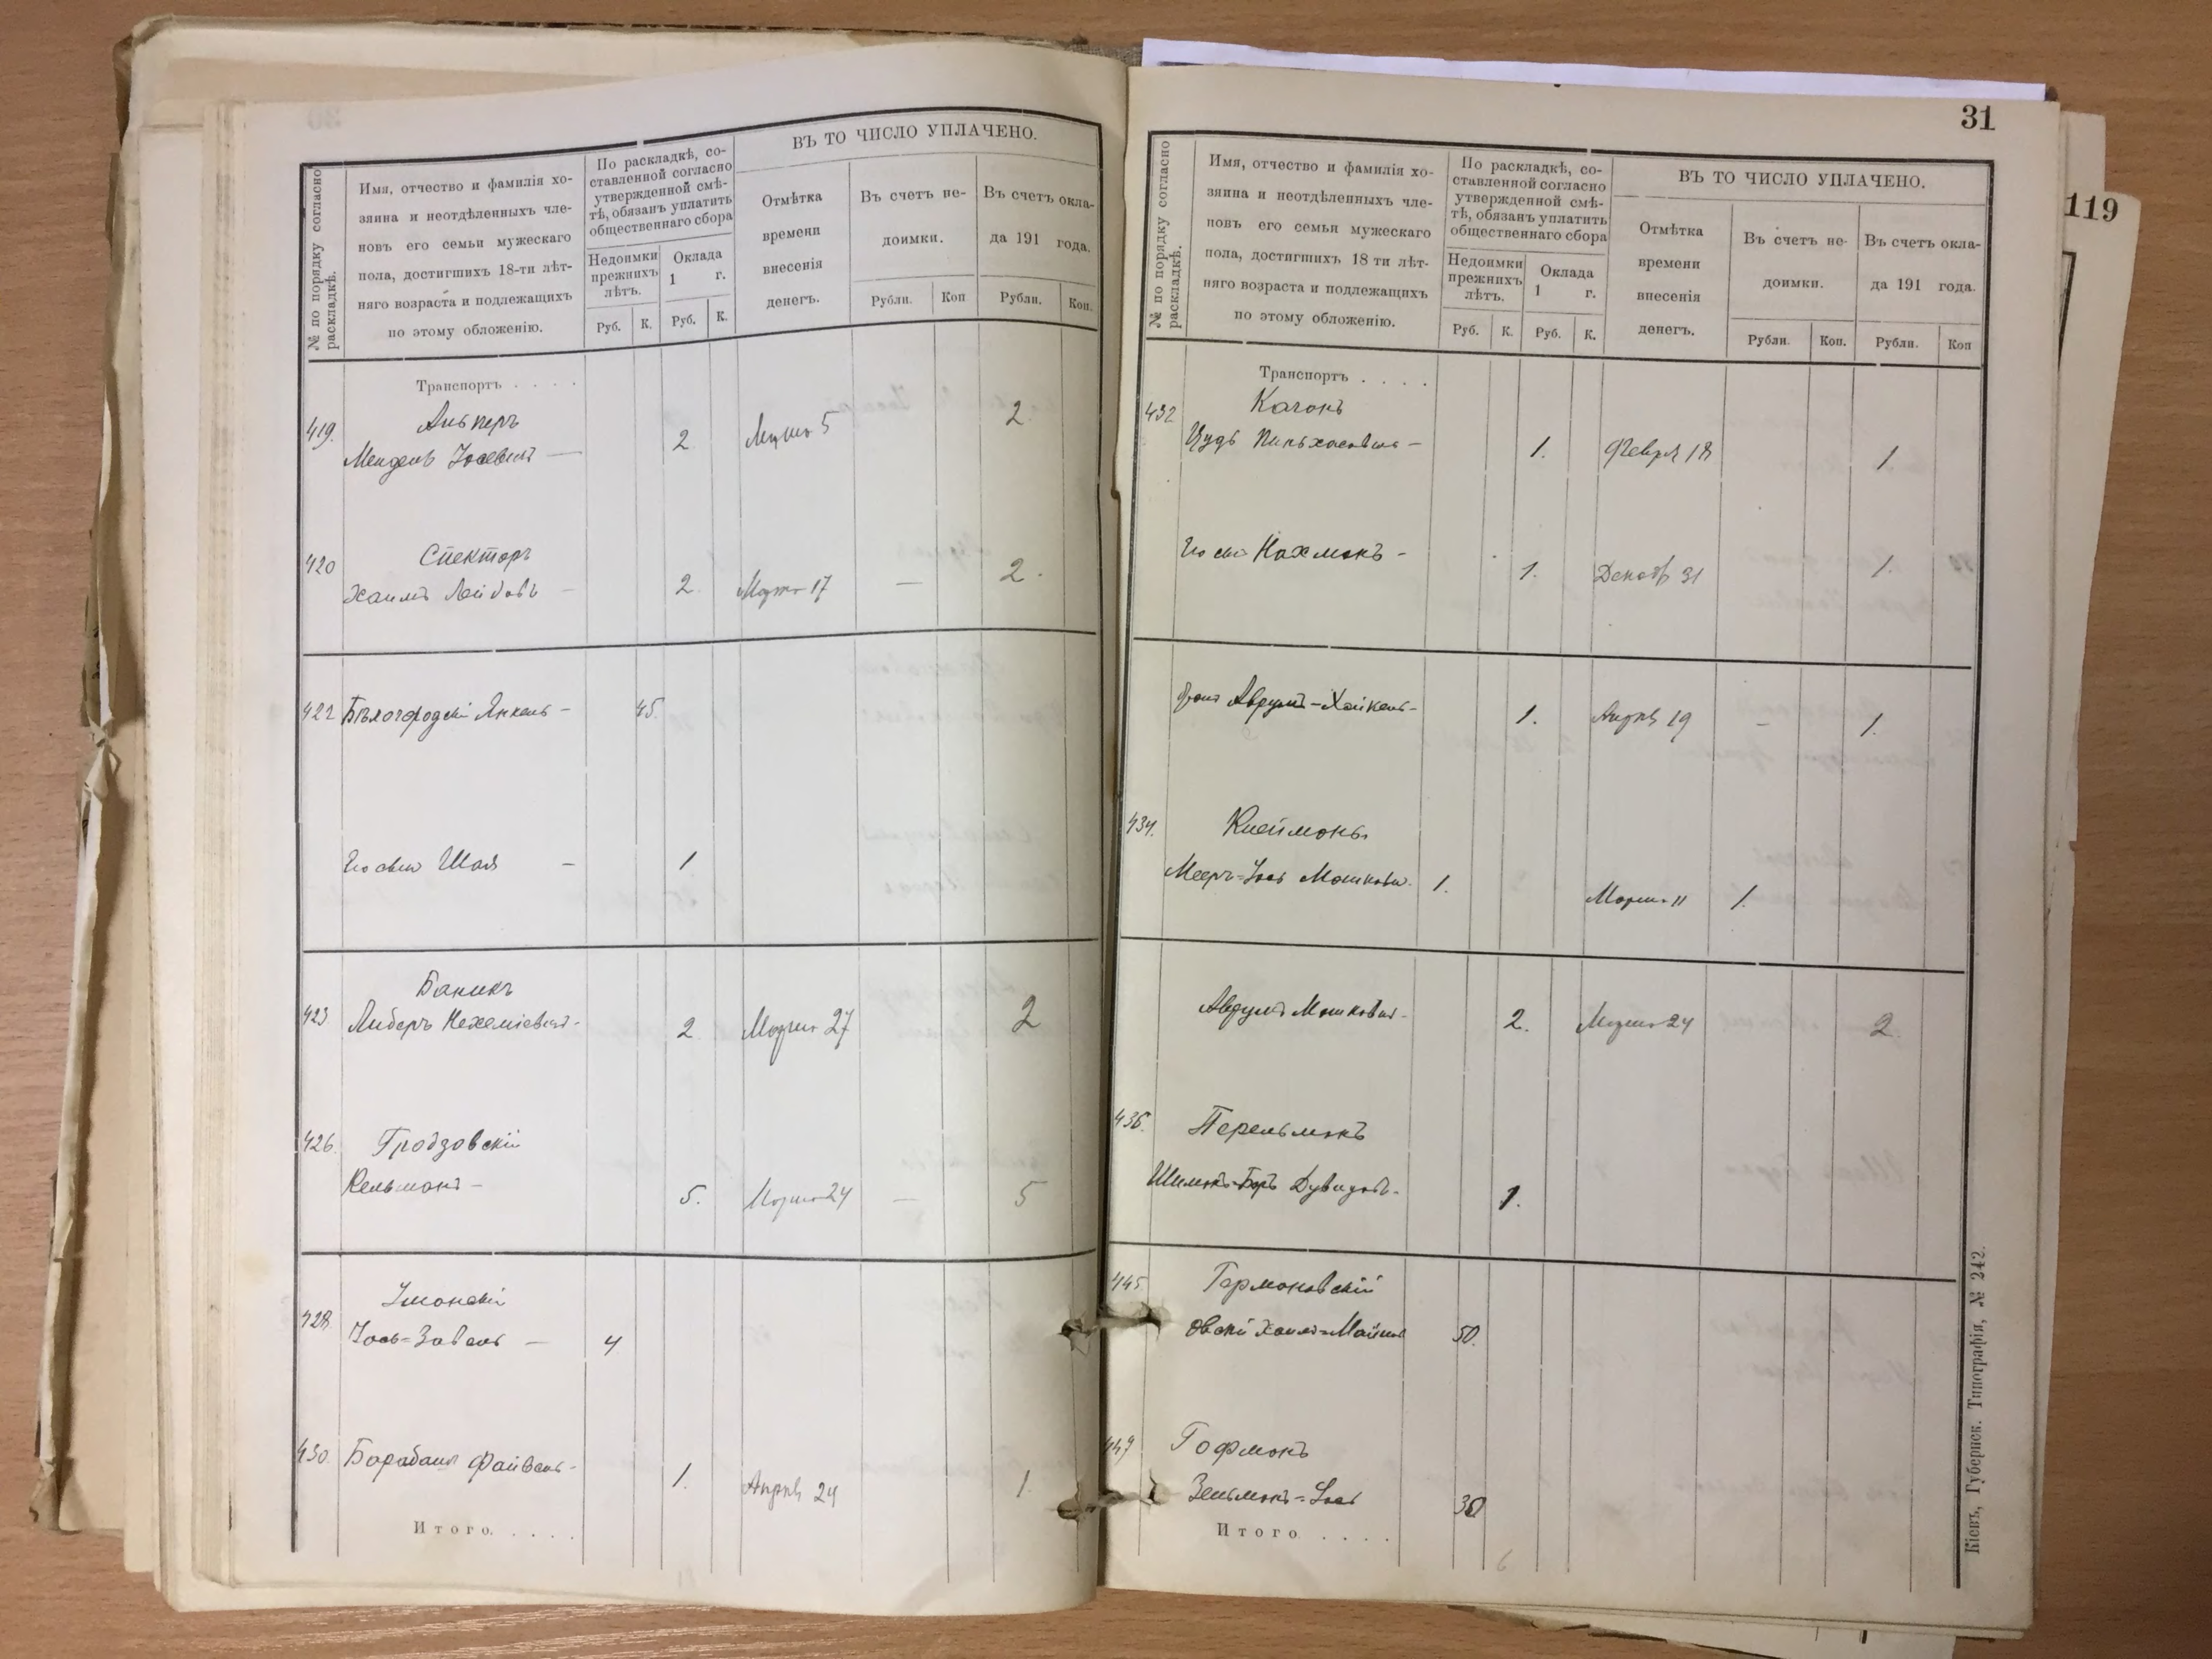 № по порядку согласно
раскладкѣ.
Имя, отчество и фамилія хо-
зяина и неотдѣленныхъ чле-
новъ его семьи мужескаго
пола, достигшихъ 18-ти лѣт-
няго возраста и подлежащихъ
по этому обложенію.
По раскладкѣ, со-
ставленной согласно
утвержденной смѣ-
тѣ, обязанъ уплатить
общественнаго сбора
Недоимки
прежнихъ
лѣтъ.
Оклада
1 г.
Руб. К. Руб. К.
ВЪ ТО ЧИСЛО УПЛАЧЕНО.
Отмѣтка
времени
внесенія
денегъ.
Въ счетъ не-
доимки.
Въ счетъ окла-
да 191 года.
Рубли. Коп Рубли. Коп.
Транспортъ . . . .
419. Альперъ
Мендель Іосевичъ — 2. Марта 5 2.
420 Спекторъ
Хаимъ Лейбовъ — 2. Марта 17 — 2.
422 Бѣлогородскій Янкель — 45.
Его сынъ Шая — 1
423 Баникъ
Либеръ Нехеміевичъ - 2. Марта 27 2
426. Гродзовскій
Кельманъ — 5. Марта 24 — 5
428. Уманскій
Іось=Завель — 4
430. Барабаш Файвель - 1. Апрѣл 24 1.
Итого. . . . .
31
№ по порядку согласно
раскладкѣ.
Имя, отчество и фамилія хо-
зяина и неотдѣленныхъ чле-
новъ его семьи мужескаго
пола, достигшихъ 18 ти лѣт-
няго возраста и подлежащихъ
по этому обложенію.
По раскладкѣ, со-
ставленной согласно
утвержденной смѣ-
тѣ, обязанъ уплатить
общественнаго сбора
Недоимки
прежнихъ
лѣтъ.
Оклада
1 г.
Руб. К. Руб. К.
ВЪ ТО ЧИСЛО УПЛАЧЕНО.
Отмѣтка
времени
внесенія
денегъ.
Въ счетъ не-
доимки.
Въ счетъ окла-
да 191 года.
Рубли. Коп. Рубли. Коп
Транспортъ . . . .
432 Каганъ
Иудъ Пинхасовичъ — 1. Февр 18 1
Его сынъ Нахманъ - 1. Декаб 31 1.
Аврумъ-Хайкель - 1. Апрѣл 19 - 1.
434. Клейманъ
Мееръ=Іось Мошковъ. 1. Марта 11 1.
Аврумъ Мошковъ - 2. Марта 24 2.
436. Перельманъ
Шимонъ-Беръ Дувидовъ - 1.
445. Германовскій
овскій Хаимъ-Майшъ 50.
447 Гофманъ
Зельманъ=Іось 30
Итого . . . .
Кіевъ, Губернск. Типографія, № 242.
119